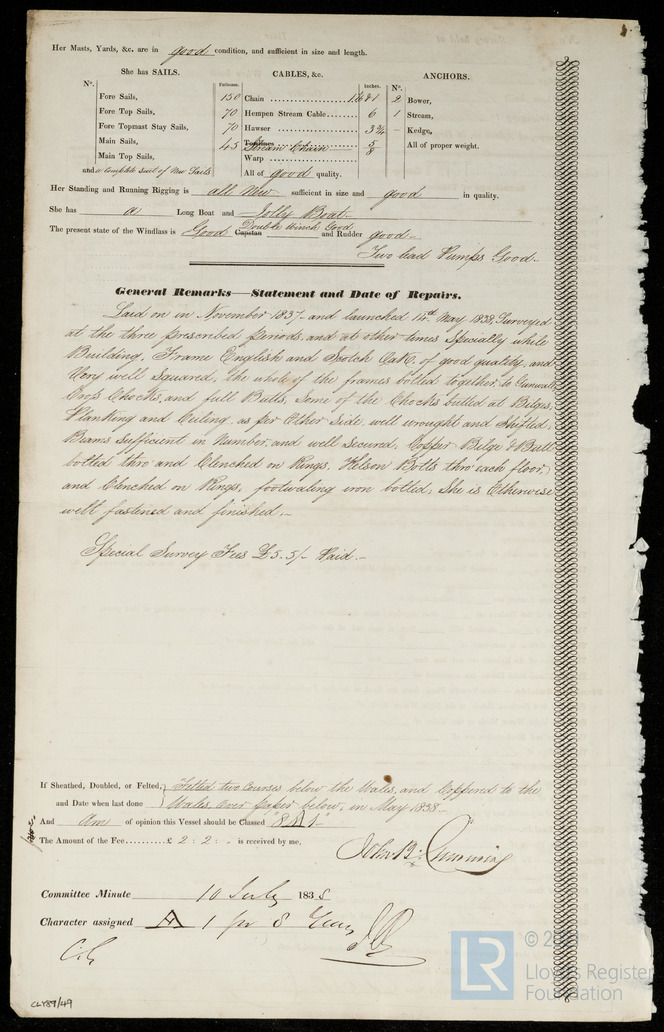 Her Masts, Yards, &c. are in good condition, and sufficient in size and length.
She has SAILS. CABLES, &c. ANCHORS.
Nº. Fathoms. Inches. Nº.
Fore Sails, 150 Chain 2 Bower,
Fore Top Sails, 70 Hempen Stream Cable 6 1 Stream,
Fore Topmast Stay Sails, 70 Hawser 3¾ – Kedge,
Main Sails, 45 Stream Chain 5/8 All of proper weight.
Main Top Sails, Warp
and a Complete suit of New Sails All of good quality.
Her Standing and Running Rigging is all New sufficient in size and good in quality.
She has a Long Boat and Jolly Boat.-
Double Winch Good
The present state of the Windlass is Good Capstan and Rudder good-
Two lead Pumps Good.-
General Remarks—Statement and Date of Repairs.
Laid on in November 1837- and launched 14th May 1838, Surveyed
at the three prescribed periods, and at other times Specially while
Building, Frame English and Scotch Oak, of good quality, and
Very well Squared, the whole of the frames bolted together, to Gunwall
Cross Chocks, and full Butts, Some of the Chocks butted at Bilges,
Planking and Ceiling, as per Other Side, well wrought and Shifted.
Beams Sufficient in Number, and well Secured, Copper Bilge & Butt
bolted thro' and Clenched on Rings, Kelson Bolts thro' each floor,
and Clenched on Rings, footwaling iron bolted, She is Otherwise
well fastened and finished.-
Special Survey Fees £5.5/- Paid.-
If Sheathed, Doubled, or Felted, Felted two Courses below the Wales, and Coppered to the
and Date when last done Wales, over paper below, in May 1838-
And Am of opinion this Vessel should be Classed "8 A 1"
The Amount of the Fee......£ 2 : 2 : - is received by me,
John B. Cumming
Committee Minute 10 July 1838
Character assigned A 1 for 8 Years
C.G
CLY89/49
LR
Lloyd's Register
Foundation